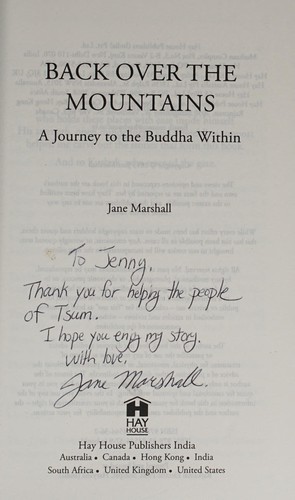 BACK OVER THE
MOUNTAINS
A Journey to the Buddha Within
Jane Marshall
To Jenny,
Thank you for helping the people
of Tsum.
I hope you enjoy my story.
with love,
Jane Marshall.
HAY
HOUSE
Hay House Publishers India
Australia • Canada • Hong Kong • India
South Africa • United Kingdom • United States